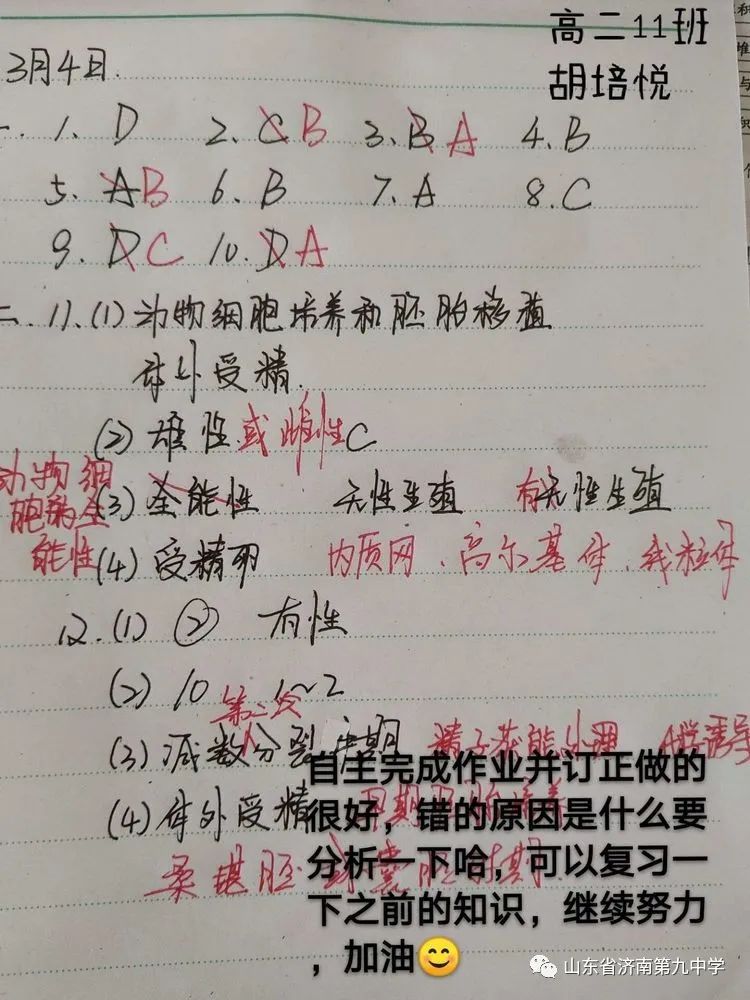 高二11班
胡培悦
3月4日.
一. 1. D 2. C B 3. B A 4. B
5. A B 6. B 7. A 8. C
9. D C 10. D A
二. 11. (1) 动物细胞培养和胚胎移植
体外受精.
(2) 雄性 或雌性 C
动物细胞的全能性
(3) 全能性 无性生殖 有 无性生殖
(4) 受精卵 内质网、高尔基体、线粒体
12. (1) ② 有性
(2) 10 1~2
第二次
(3) 减数分裂中期 精子获能处理
(4) 体外受精 早期胚胎培养
桑椹胚或囊胚时期
自主完成作业并订正做的
很好，错的原因是什么要
分析一下哈，可以复习一
下之前的知识，继续努力
，加油😊
山东省济南第九中学